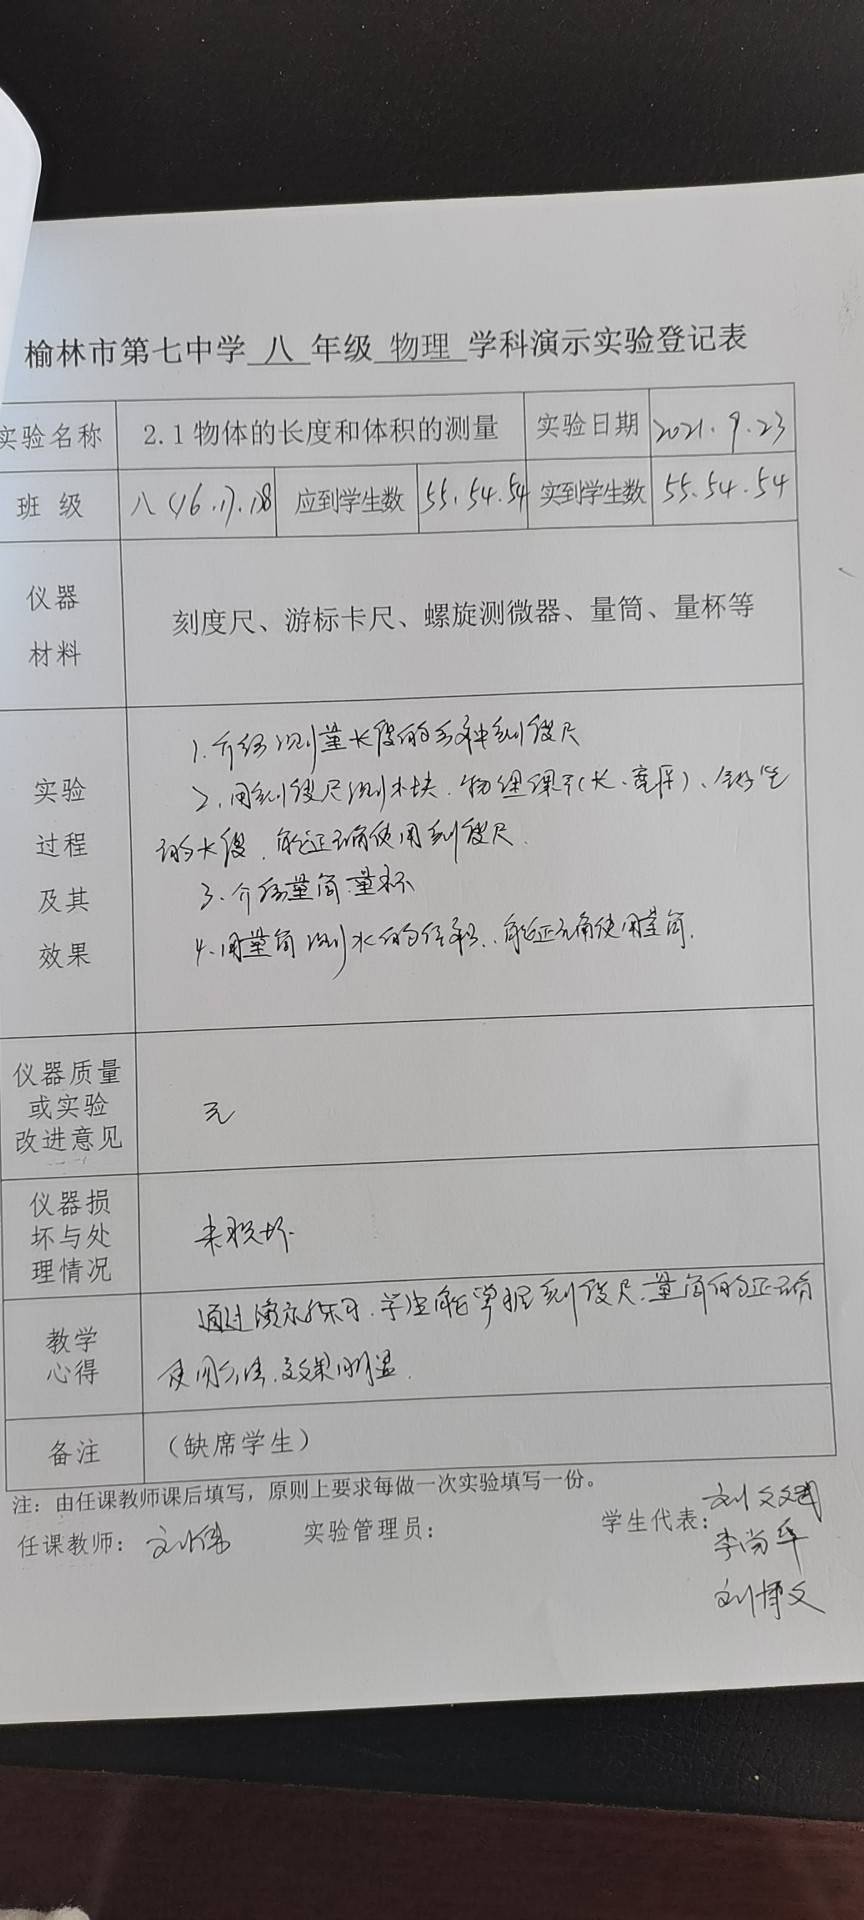 榆林市第七中学 八 年级 物理 学科演示实验登记表
实验名称 2.1 物体的长度和体积的测量 实验日期 2021.9.23
班 级 八(16.17.18 应到学生数 55.54.54 实到学生数 55.54.54
仪器
材料
刻度尺、游标卡尺、螺旋测微器、量筒、量杯等
实验
过程
及其
效果
1.介绍测量长度的多种刻度尺
2.用刻度尺测木块.物理课本(长、宽.厚)、
的长度.能正确使用刻度尺.
3.介绍量筒.量杯
4.用量筒测水的体积.能正确使用量筒.
仪器质量
或实验
改进意见
无
仪器损
坏与处
理情况
未损坏.
教学
心得
通过演示练习.学生能掌握刻度尺.量筒的正确
使用方法.效果明显.
备注 （缺席学生）
注：由任课教师课后填写，原则上要求每做一次实验填写一份。
任课教师：刘伟 实验管理员： 学生代表：刘文斌
李尚华
刘博文